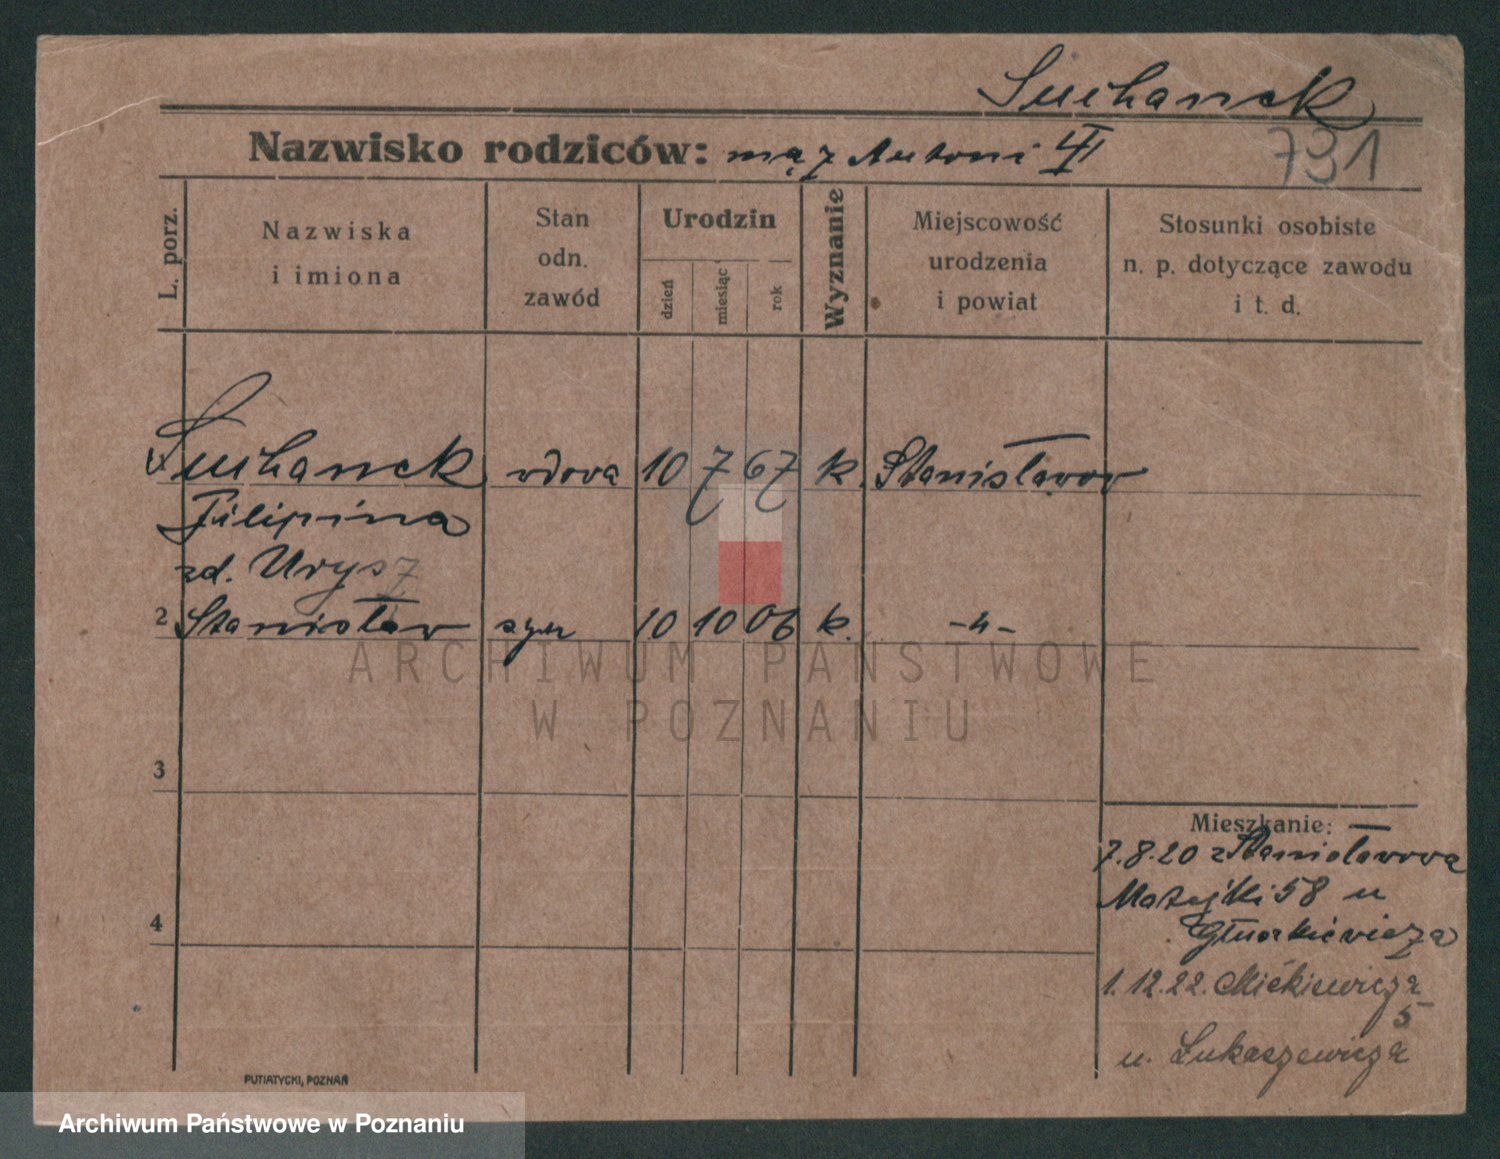 Suchanek
Nazwisko rodziców: mąż Antoni
731
L. porz.
Nazwiska
i imiona
Stan
odn.
zawód
Urodzin
dzień
miesiąc
rok
Wyznanie
Miejscowość
urodzenia
i powiat
Stosunki osobiste
n. p. dotyczące zawodu
i t. d.
Suchanek wdova 10 7 67 k. Stanisławov
Filipina
zd. Urysz
2 Stanisław syn 10 10 06 k. -"-
ARCHIWUM PAŃSTWOWE
W POZNANIU
3
Mieszkanie:
7.8.20 z Stanisławova
Matejki 58 u
4
1.12.22. Mickiewicza
5
u. Łukaszewicza
PUTIATYCKI, POZNAŃ
Archiwum Państwowe w Poznaniu